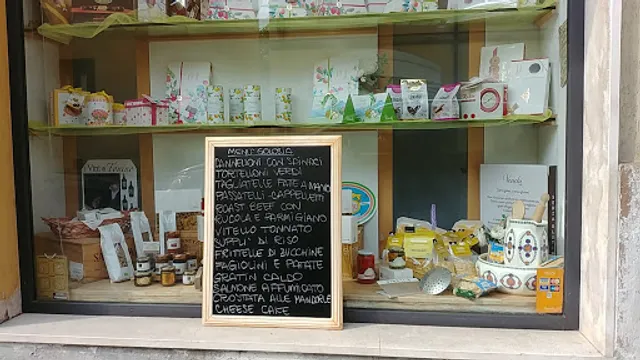 MENÙ
CANNELLONI CON SPINACI
TORTELLONI VERDI
TAGLIATELLE FATE A MANO
PASSATELLI - CAPPELLETTI
ROAST BEEF CON
RUCOLA E PARMIGIANO
VITELLO TONNATO
SUPPLI' DI RISO
FRITTELLE DI ZUCCHINE
FAGIOLINI E PATATE
GRATIN CALDO
SALMONE AFFUMICATO
CROSTATA ALLE MANDORLE
CHEESE CAKE